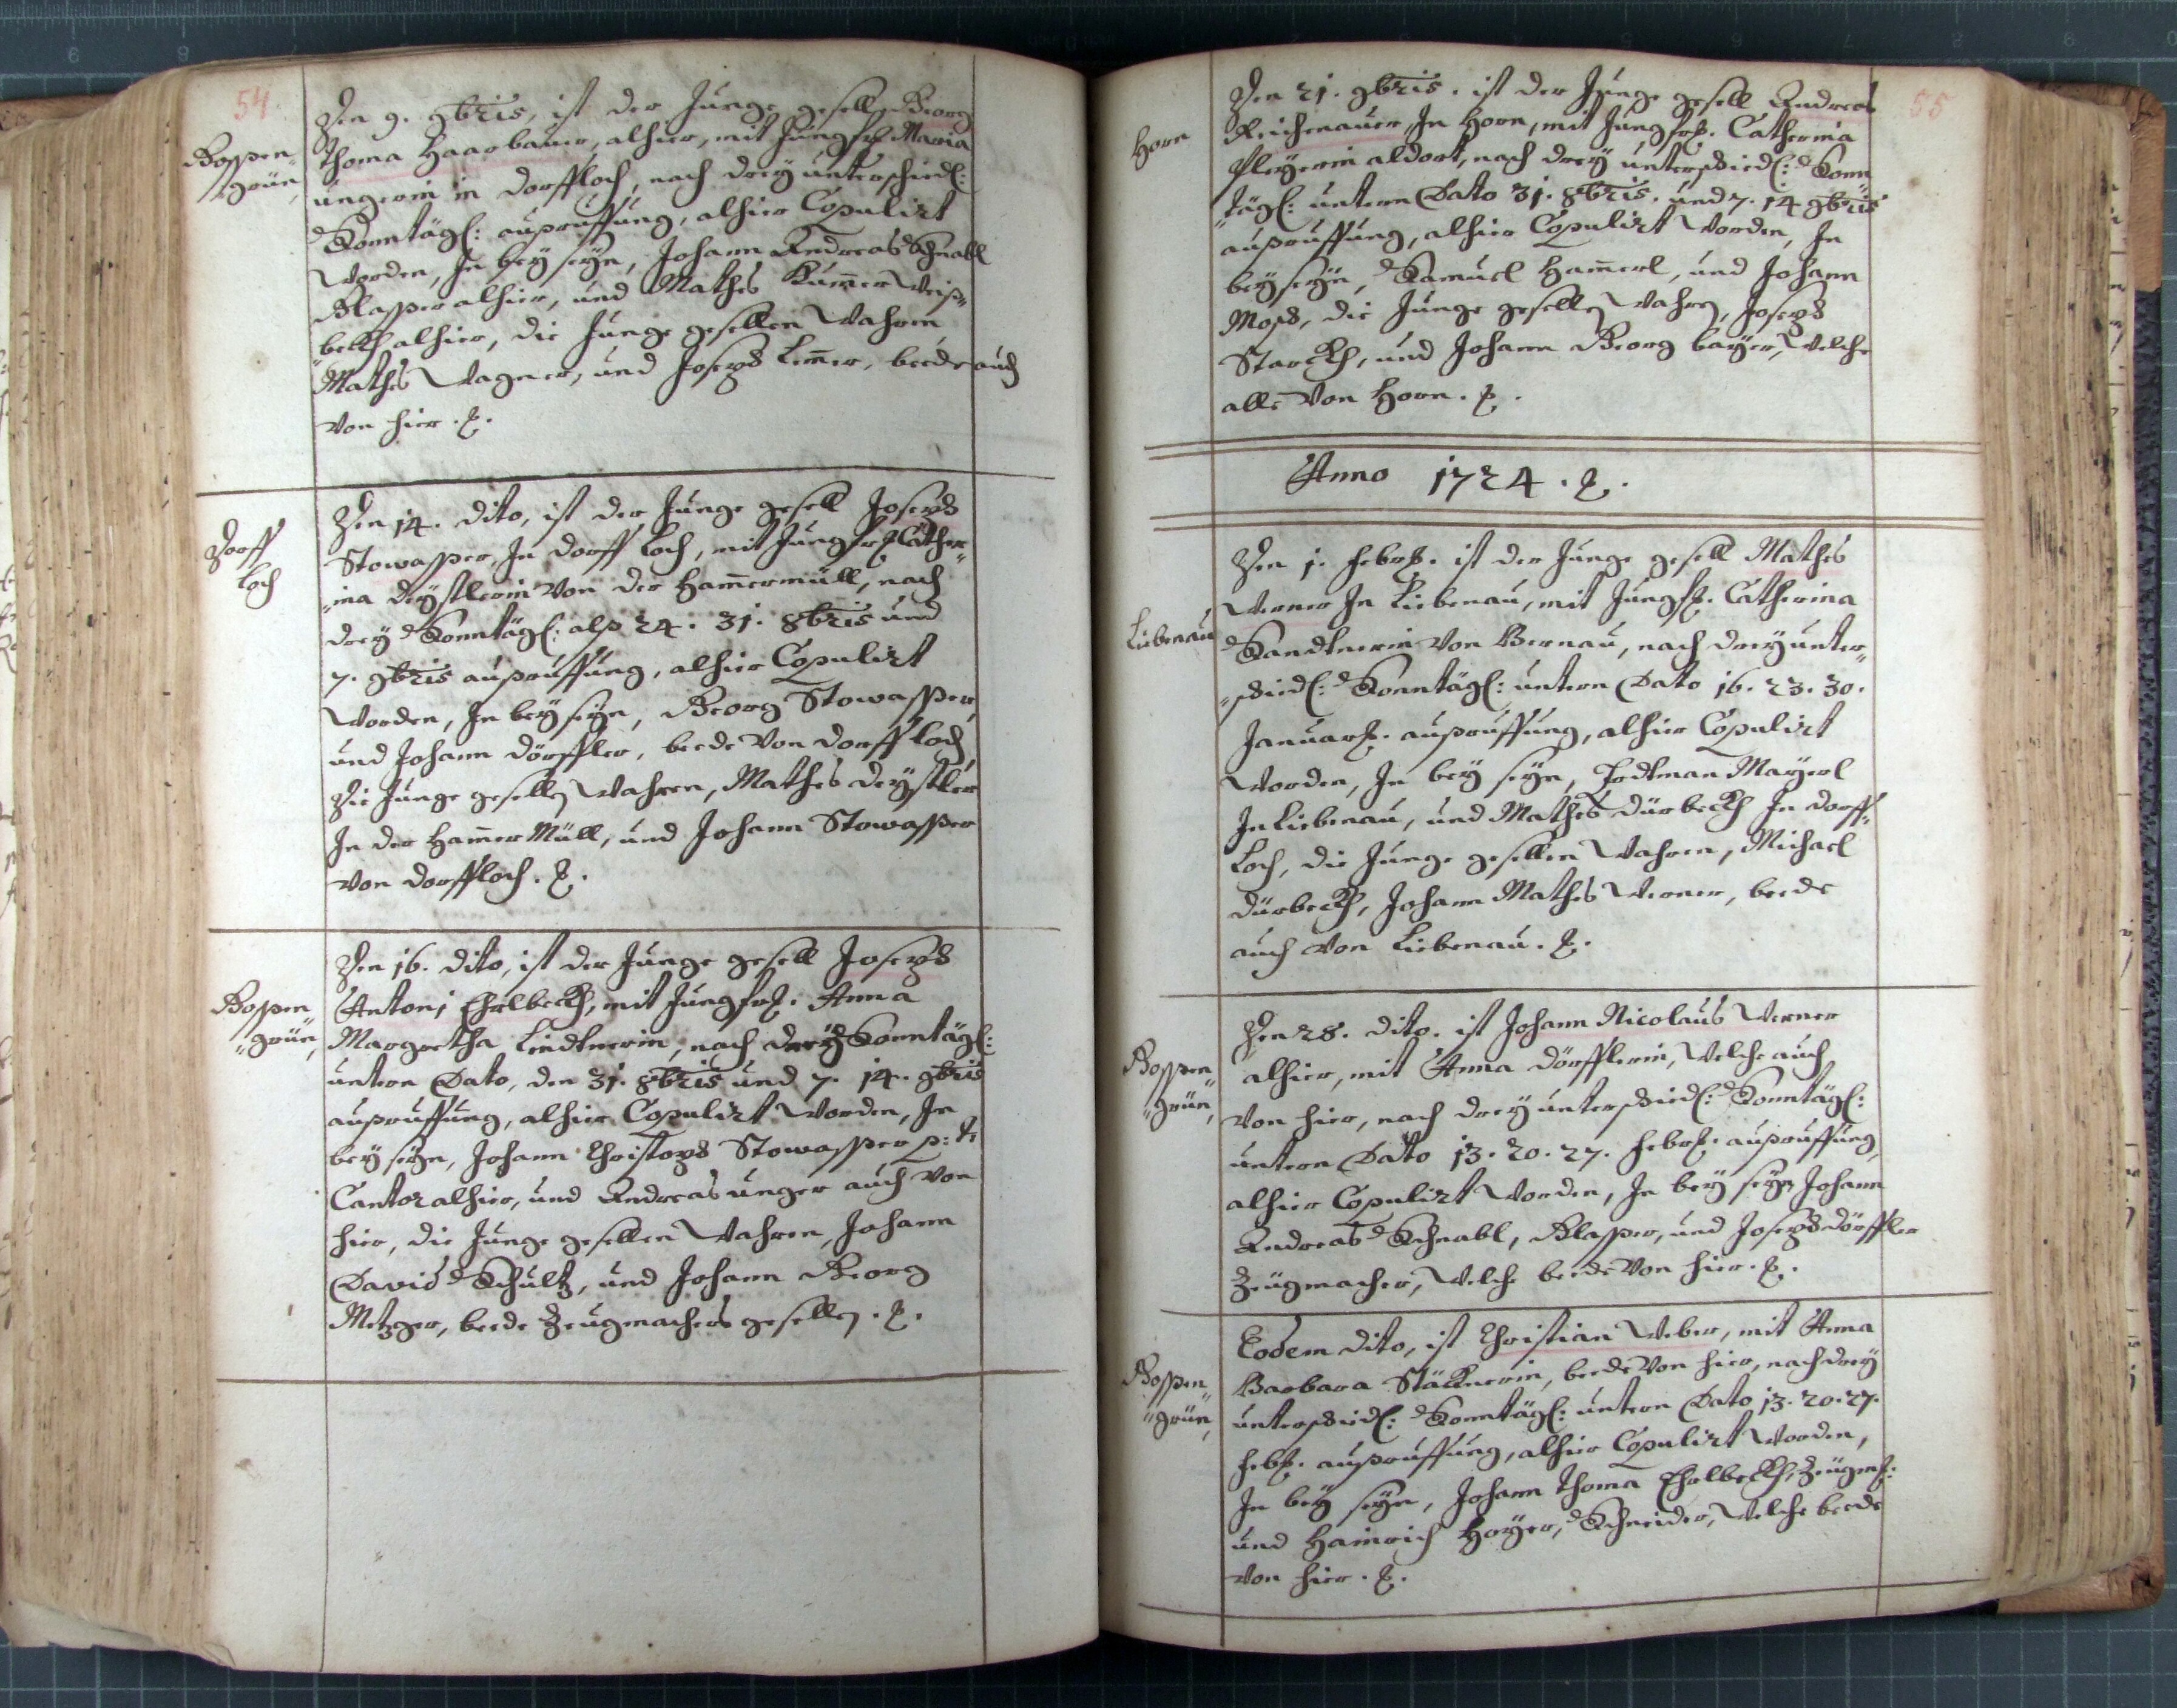 54
Boppen„
„grün,
Den 9. 9bris, ist der Junge gesell Georg
Thoma Haarbauer, alhier, mit Jungfr. Maria
ungerin in Dorffloch, nach drey unterschiedl:
Sontägl: außruffung, alhier Copulirt
worden, In bey seyn, Johann Andreas Schnabl
Blasser alhier, und Mathes Kum̄er Weiß„
„beckh alhier, die Junge gesellen wahren
Mathes Wagner, und Joseph Lem̄er, beede auch
von hier.
Dorff
Loch
Den 14. dito, ist der Junge gesell Joseph
Stowasser, In Dorff Loch, mit Jungfr. Cather„
„ina Deystlerin von der Ham̄ermüll, nach
drey Sonntägl: alß 24. 31. 8bris und
7. 9bris außruffung, alhier Copulirt
worden, In bey seyn, Georg Stowasser,
und Johann Dörffler, beede von Dorff Loch,
Die Junge gesellen wahren, Mathes Deystler
In der Ham̄er Müll, und Johann Stowasser
von Dorffloch.
Boppen
„grün,
Den 16. dito, ist der Junge gesell Joseph
Antonj Ehrlbeckh, mit Jungfr. Anna
Margretha Lindtnerin, nach drey Sonntägl:
untern Dato, den 31. 8bris und 7. 14. 9bris
außruffung, alhier Copulirt worden, In
bey seyn, Johann Christoph Stowasser p: t:
Cantor alhier, und Andreas unger auch von
hier, die Junge gesellen wahren, Johann
David Schultz, und Johann Georg
Metzger, beede Zeugmachers gesellen.
55
Horn
Den 21. 9bris. ist der Junge gesell Andreas
Reichenauer, In Horn, mit Jungfr. Catherina
Pleyerin aldort, nach drey unterschiedl: Sonn„
„tägl: untern Dato 31. 8bris. und 7. 14 9bris
außruffung, alhier Copulirt worden, In
beyseyn, Samuel Ham̄erl, und Johann
die Junge gesellen wahren, Joseph
Starckh, und Johann Georg bayer, welche
alle von Horn.
Anno 1724.
Liebenau
Den 1. Febr. ist der Junge gesell Mathes
Werner In Liebenau, mit Jungf. Catherina
Sandtnerin von Bernau, nach drey unter„
„schiedl: Sonntägl: untern Dato 16. 23. 30.
Januar. außruffung, alhier Copulirt
worden, In bey seyn, Erdtman Mayerl
In Liebenau, und Mathes Dürbeckh In Dorff„
Loch, die Junge gesellen wahren, Michael
Dürbeckh, Johann Mathes Werner, beede
auch von Liebenau.
Boppen„
„grün,
Den 28. dito. ist Johann Nicolaus Werner
alhier, mit Anna Dörfflerin, welche auch
von hier, nach drey unterschiedl: Sonntägl:
untern Dato 13. 20. 27. Febr. außruffung,
alhier Copulirt worden, In bey seyn Johann
Andreas Schnabl, Blasser, und Joseph Dörffler
Zeugmacher, welche beede von hier.
Boppen„
„grün,
Eodem dito, ist Christian Weber, mit Anna
Barbara Stäcknerin, beede von hier, nach drey
unterschiedl: Sonntägl: untern Dato 13. 20. 27.
Feb. außruffung, alhier Copulirt worden,
In bey seyn, Johann Thoma Ehrlbeckh, Zeugm:
und Hainrich Hoyer, Schneider, welche beede
von hier.